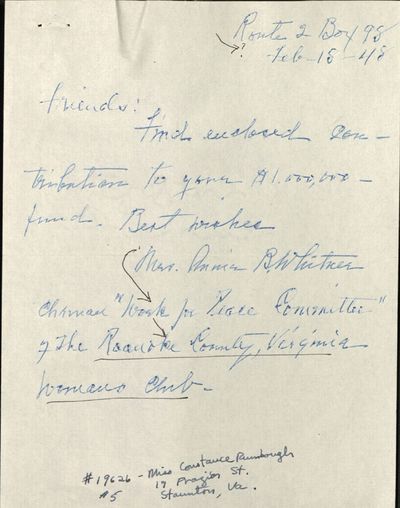 Route 2 Box 98
?
Feb-18-48
Friends:
Find enclosed Con-
tribution to your $1.000,000-
fund. Best wishes
Mrs. Annie B. Whitner
Chrman "Work for Peace Committee"
of The Roanoke County, Virginia
Womans Club-
#19626 - Miss Constance Rumbough
#5 19 Frazier St.
Staunton, Va.